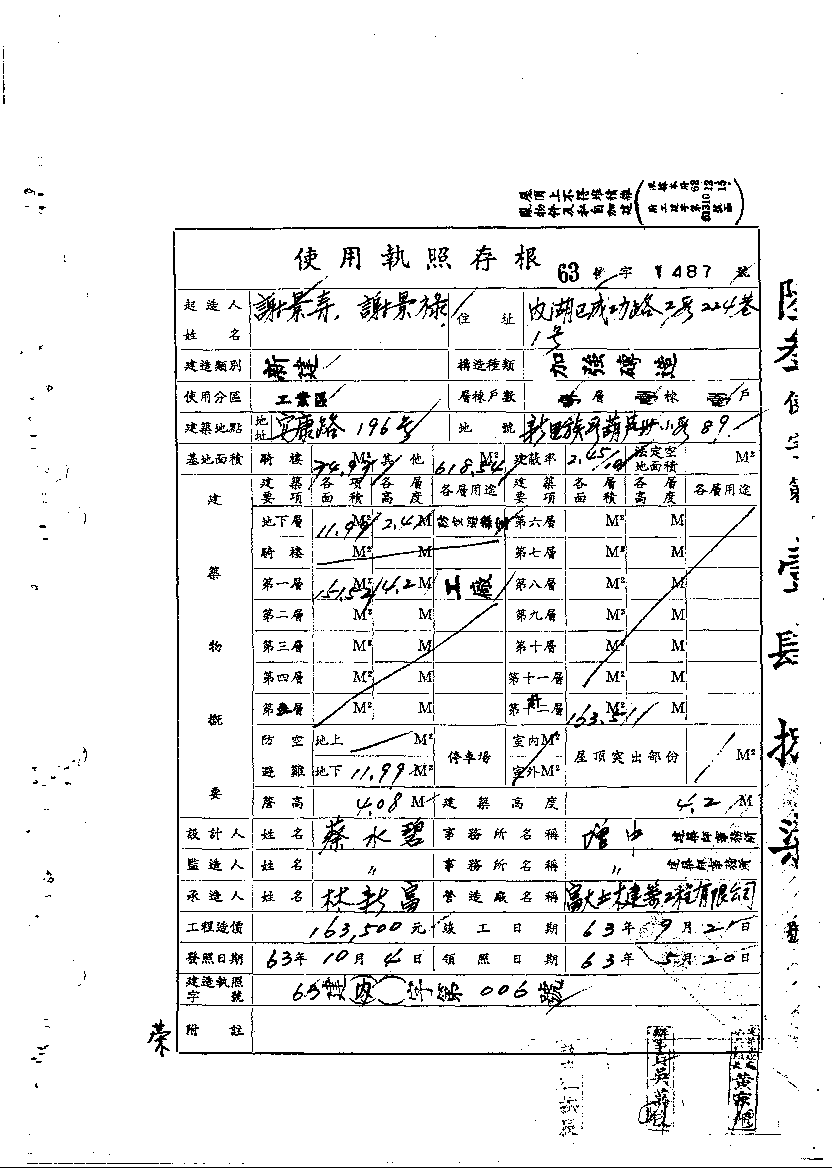 屋頂上不得堆積雜
物件及私自加建
使用執照存根 63 字 1487 號
起造人姓名 謝景寿、謝景祿 住址 內湖區成功路2段224巷1号
建造類別 新建 構造種類 加強磚造
使用分區 工業區 層棟戶數 層 棟 戶
建築地點 地址 安康路196号 地號 新里族段葫蘆洲小段89
基地面積 騎樓 74.97 M² 其他 618.54 M² 建蔽率 2.45/10 法定空地面積 M²
建築物概要 建築要項 各項面積 各層高度 各層用途 建築要項 各層面積 各層高度 各層用途
地下層 11.99 M² 2.4 M 第六層 M² M
騎樓 M² 第七層 M² M
第一層 151.52 M² 4.2 M 工廠 第八層 M² M
第二層 M² M 第九層 M² M
第三層 M² M 第十層 M² M
第四層 M² M 第十一層 M² M
第五層 M² M 第十二層 計 163.511 M² M
防空避難 地上 M² 停車場 室內M² 屋頂突出部份 M²
地下 11.99 M² 室外M²
簷高 4.08 M 建築高度 4.2 M
設計人 姓名 蔡水碧 事務所名稱 增中 建築師事務所
監造人 姓名 〃 事務所名稱 〃 建築師事務所
承造人 姓名 林新富 營造廠名稱 富大土木建築工程有限公司
工程造價 163,500元 竣工日期 63年9月21日
發照日期 63年10月4日 領照日期 63年5月20日
建造執照字號 63建(內)( )字第006號
附註
榮